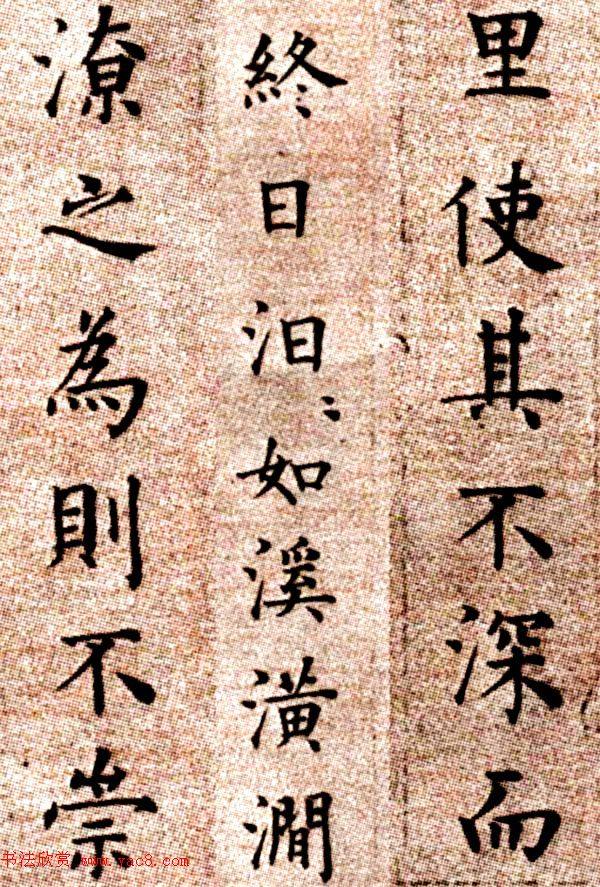 里使其不深而
終日汨〻如溪潢澗
潦之為則不崇
书法欣赏 www.yac8.com